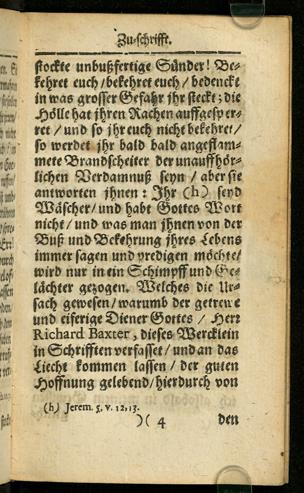 Zu-schrifft.
stockte unbußfertige Sünder! Be-
kehret euch / bekehret euch / bedenckt
in was grosser Gefahr jhr steckt; die
Hölle hat jhren Rachen auffgesper-
ret / und so jhr euch nicht bekehret /
so werdet jhr bald bald angeflam-
mete Brandscheiter der unauffhör-
lichen Verdamnuß seyn / aber sie
antworten jhnen: Jhr (h) seyd
Wäscher / und habt Gottes Wort
nicht / und was man jhnen von der
Buß und Bekehrung jhres Lebens
immer sagen und predigen möchte /
wird nur in ein Schimpff und Ge-
lächter gezogen. Welches die Ur-
sach gewesen / warumb der getreue
und eiferige Diener Gottes / Herr
Richard Baxter, dieses Wercklein
in Schrifften verfasset / und an das
Liecht kommen lassen / der guten
Hoffnung gelebend / hierdurch von
(h) Jerem. 5. v. 12, 13.
)( 4 den